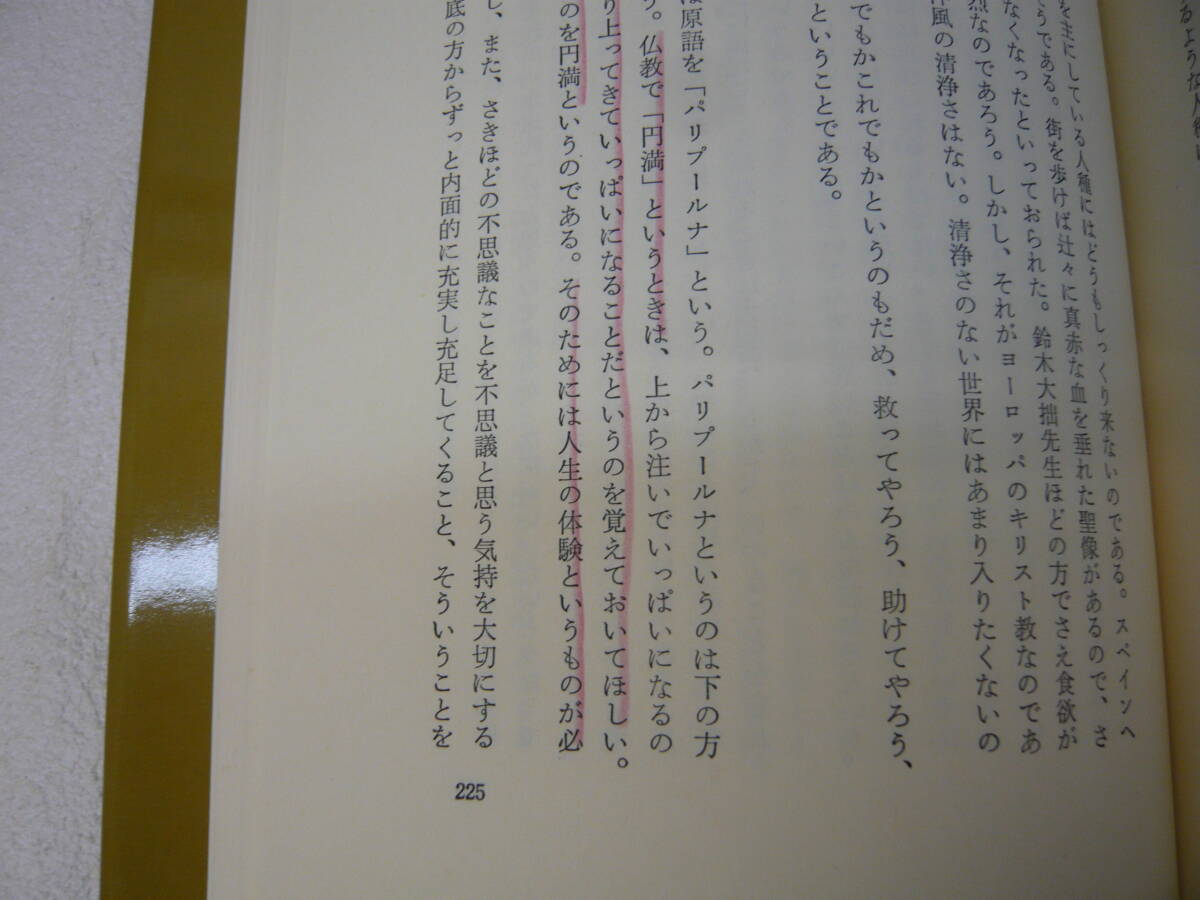 るような人種に
を主にしている人種にはどうもしっくり来ないのである。スペインへ
そうである。街を歩けば辻々に真赤な血を垂れた聖像があるので、さ
なくなったといっておられた。鈴木大拙先生ほどの方でさえ食欲が
烈なのであろう。しかし、それがヨーロッパのキリスト教なのであ
風の清浄さはない。清浄さのない世界にはあまり入りたくないの
でもかこれでもかというのもだめ、救ってやろう、助けてやろう、
ということである。
は原語を「パリプールナ」という。パリプールナというのは下の方
う。仏教で「円満」というときは、上から注いでいっぱいになるの
り上ってきていっぱいになることだというのを覚えておいてほしい。
のを円満というのである。そのためには人生の体験というものが必
し、また、さきほどの不思議なことを不思議と思う気持を大切にする
底の方からずっと内面的に充実し充足してくること、そういうことを
225